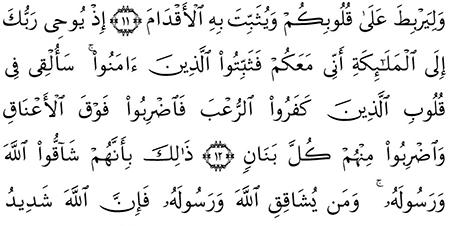 وَلِيَرْبِطَ عَلَىٰ قُلُوبِكُمْ وَيُثَبِّتَ بِهِ ٱلْأَقْدَامَ ﴿١١﴾ إِذْ يُوحِى رَبُّكَ
إِلَى ٱلْمَلَـٰٓئِكَةِ أَنِّى مَعَكُمْ فَثَبِّتُوا۟ ٱلَّذِينَ ءَامَنُوا۟ ۚ سَأُلْقِى فِى
قُلُوبِ ٱلَّذِينَ كَفَرُوا۟ ٱلرُّعْبَ فَٱضْرِبُوا۟ فَوْقَ ٱلْأَعْنَاقِ
وَٱضْرِبُوا۟ مِنْهُمْ كُلَّ بَنَانٍ ﴿١٢﴾ ذَٰلِكَ بِأَنَّهُمْ شَآقُّوا۟ ٱللَّهَ
وَرَسُولَهُۥ ۚ وَمَن يُشَاقِقِ ٱللَّهَ وَرَسُولَهُۥ فَإِنَّ ٱللَّهَ شَدِيدُ